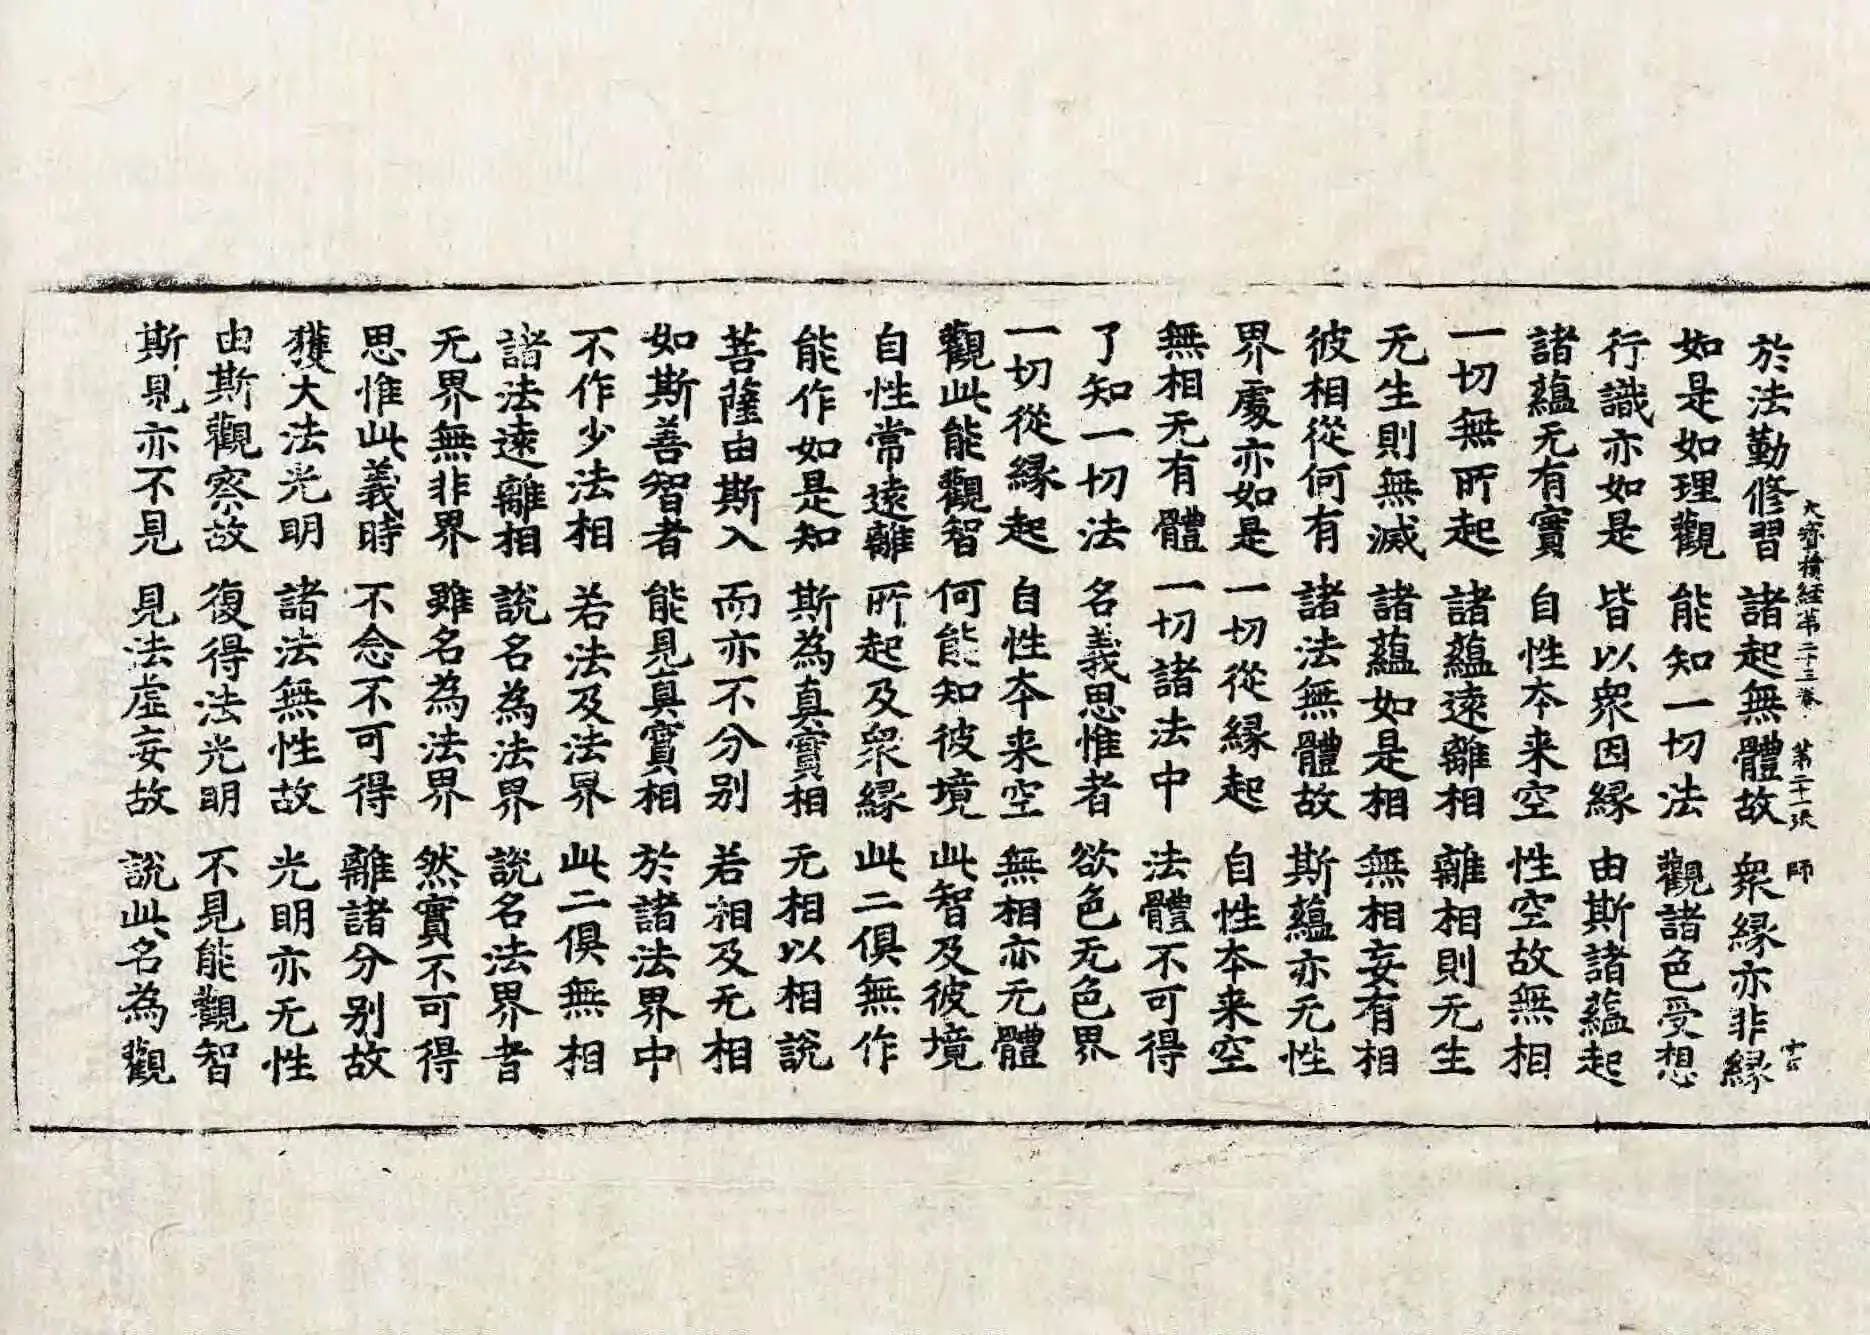 大寶積經第二十三卷 第二十一張 師
於法勤修習 諸起無體故 衆縁亦非縁
如是如理觀 能知一切法 觀諸色受想
行識亦如是 皆以衆因縁 由斯諸蘊起
諸蘊无有實 自性本来空 性空故無相
一切無所起 諸蘊遠離相 離相則无生
无生則無滅 諸蘊如是相 無相妄有相
彼相從何有 諸法無體故 斯蘊亦无性
界處亦如是 一切從縁起 自性本来空
無相无有體 一切諸法中 法體不可得
了知一切法 名義思惟者 欲色无色界
一切從縁起 自性本来空 無相亦无體
觀此能觀智 何能知彼境 此智及彼境
自性常遠離 所起及衆縁 此二俱無作
能作如是知 斯為真實相 无相以相説
菩薩由斯入 而亦不分别 若相及无相
如斯善智者 能見真實相 於諸法界中
不作少法相 若法及法界 此二俱無相
諸法遠離相 說名為法界 說名法界者
无界無非界 雖名為法界 然實不可得
思惟此義時 不念不可得 離諸分别故
獲大法光明 諸法無性故 光明亦无性
由斯觀察故 復得法光明 不見能觀智
斯見亦不見 見法虛妄故 説此名為觀